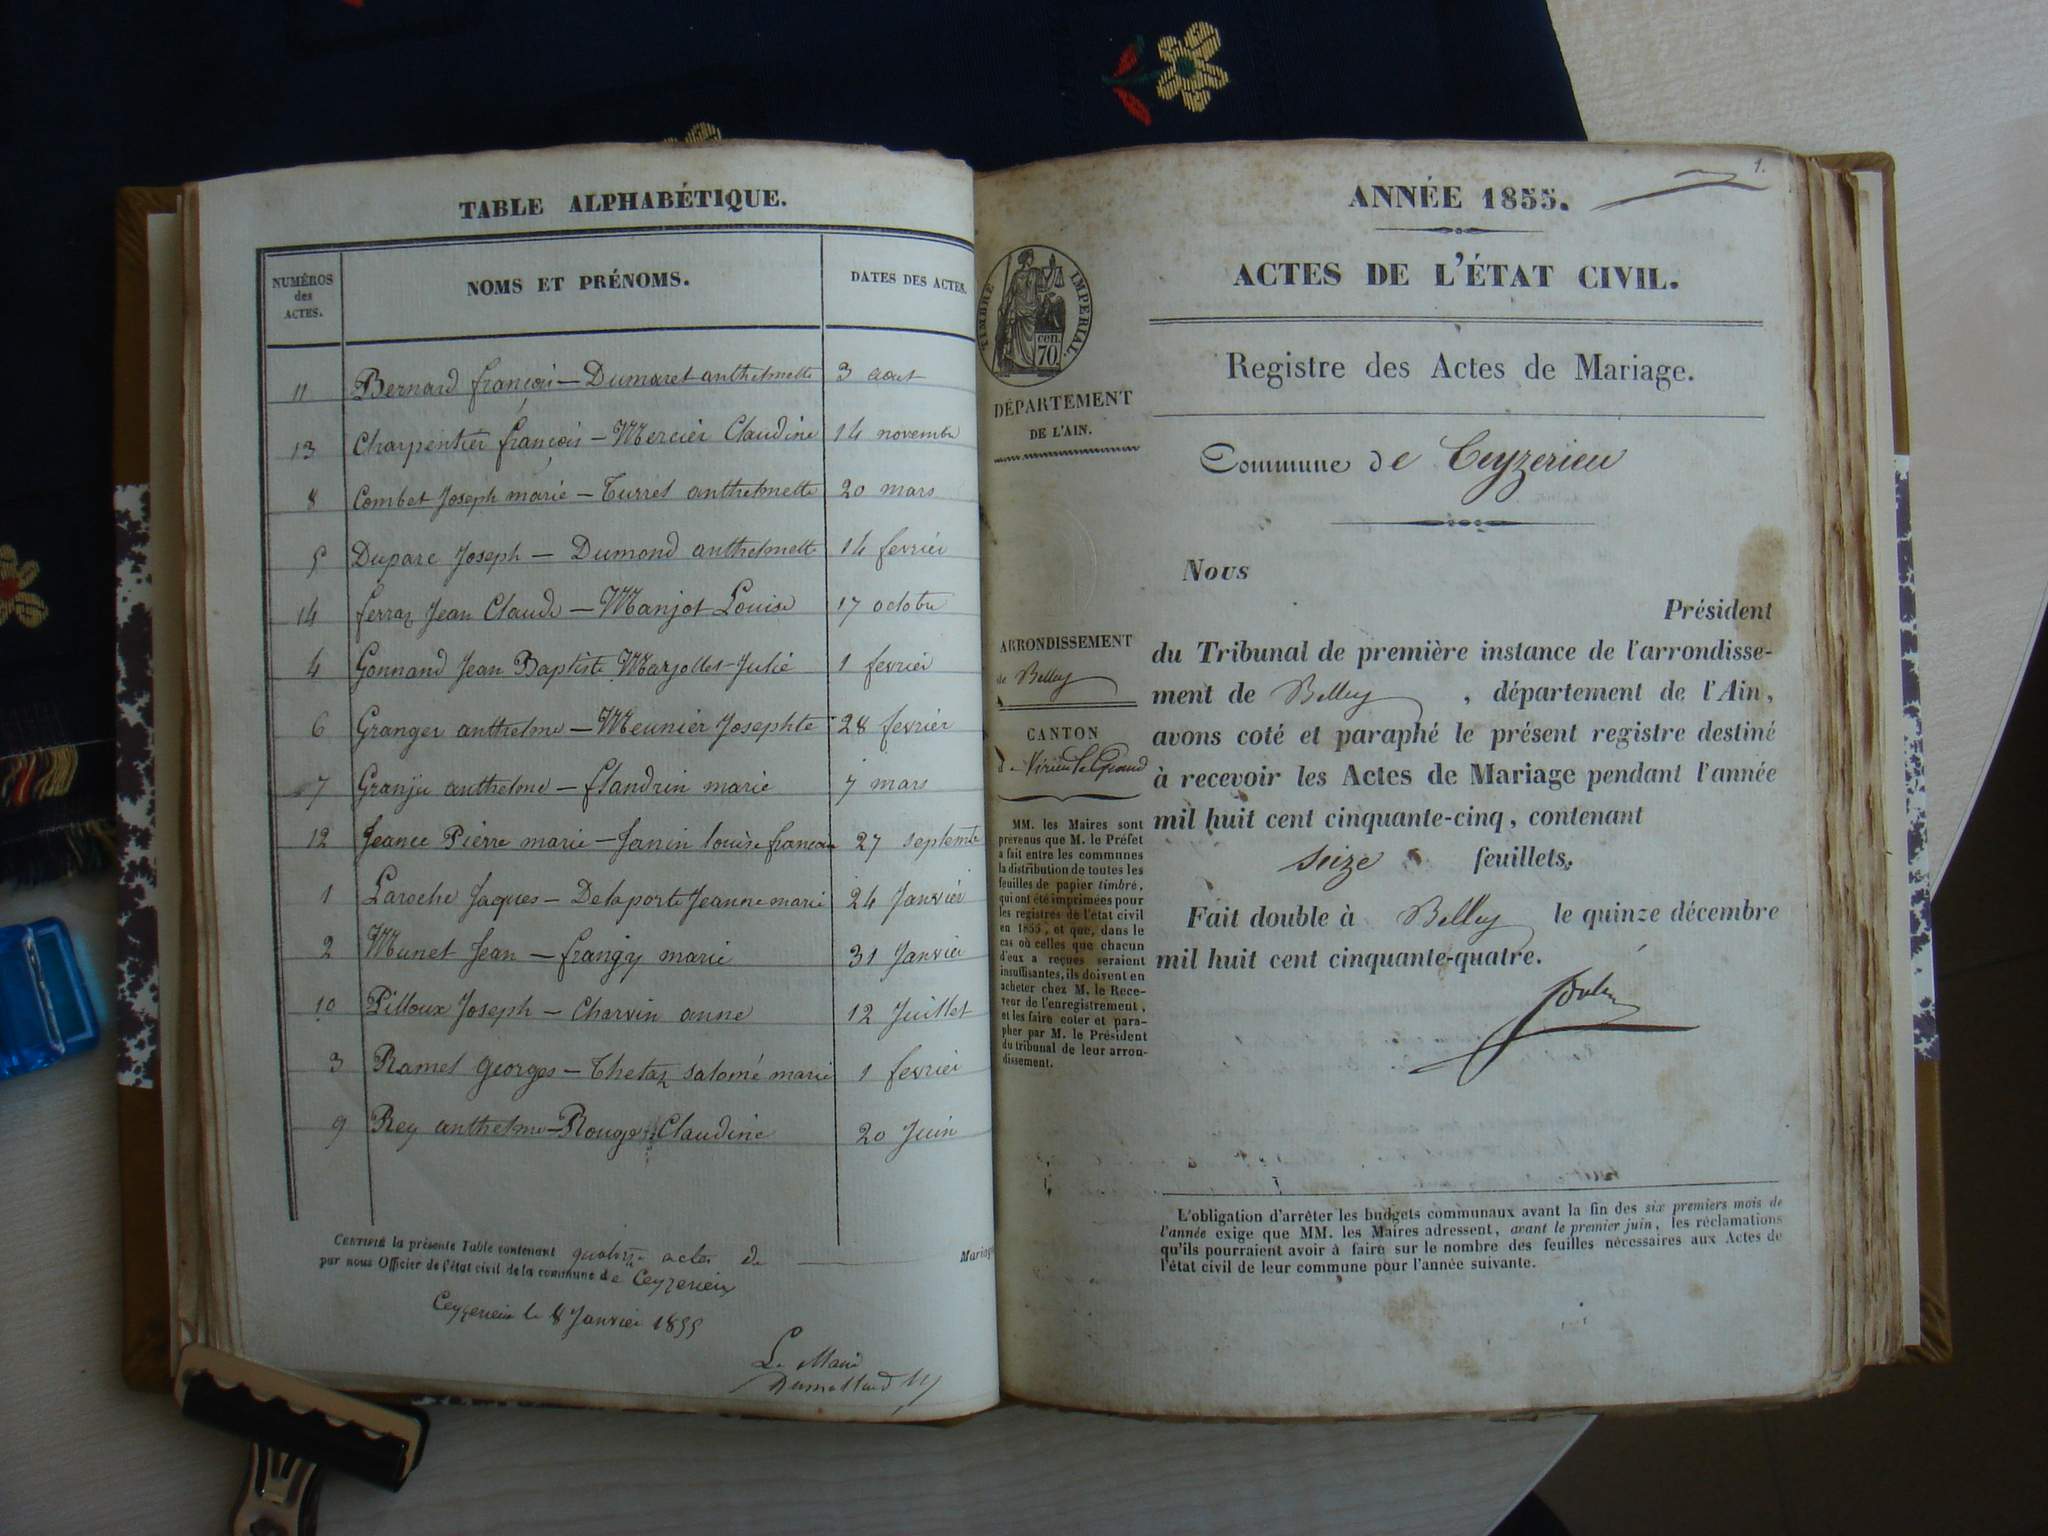 TABLE ALPHABÉTIQUE.
NUMÉROS
des
ACTES.
NOMS ET PRÉNOMS.
DATES DES ACTES.
11 Bernard françois — Dumaret anthelmette 3 aout
13 Charpentier françois — Mercier Claudine 14 novembre
8 Combet Joseph marie — Turrel anthelmette 20 mars
5 Duparc Joseph — Dumond anthelmette 14 fevrier
14 ferraz Jean Claude — Manjot Louise 17 octobre
4 Gonnand Jean Baptiste Marjollet Julie 1 fevrier
6 Granger anthelme — Meunier Josephte 28 fevrier
7 Granju anthelme — flandrin marie 7 mars
12 Jeance Pierre marie — Janin louise françoise 27 septembre
1 Laroche Jaques — Delaporte Jeanne marie 24 Janvier
2 Munet Jean — frangy marie 31 Janvier
10 Pilloux Joseph — Charvin anne 12 Juillet
3 Ramel georges — Thetaz salomé marie 1 fevrier
9 Rey anthelme — Rouge Claudine 20 Juin
CERTIFIÉ la présente Table contenant quatorze actes de Mariage
par nous Officier de l'état civil de la commune de Ceyzerieu
Ceyzerieu le 8 Janvier 1855
Le Maire
1.
ANNÉE 1855.
ACTES DE L'ÉTAT CIVIL.
Registre des Actes de Mariage.
Commune de Ceyzerieu
TIMBRE IMPERIAL.
cen.
70
DÉPARTEMENT
DE L'AIN.
ARRONDISSEMENT
de Belley
CANTON
de Virieu le Grand
MM. les Maires sont
prévenus que M. le Préfet
a fait entre les communes
la distribution de toutes les
feuilles de papier timbré,
qui ont été imprimées pour
les registres de l'état civil
en 1855, et que, dans le
cas où celles que chacun
d'eux a reçues seraient
insuffisantes, ils doivent en
acheter chez M. le Rece-
veur de l'enregistrement,
et les faire coter et para-
pher par M. le Président
du tribunal de leur arron-
dissement.
Nous
Président
du Tribunal de première instance de l'arrondisse-
ment de Belley , département de l'Ain,
avons coté et paraphé le présent registre destiné
à recevoir les Actes de Mariage pendant l'année
mil huit cent cinquante-cinq, contenant
seize feuillets.
Fait double à Belley le quinze décembre
mil huit cent cinquante-quatre.
L'obligation d'arrêter les budgets communaux avant la fin des six premiers mois de
l'année exige que MM. les Maires adressent, avant le premier juin, les réclamations
qu'ils pourraient avoir à faire sur le nombre des feuilles nécessaires aux Actes de
l'état civil de leur commune pour l'année suivante.